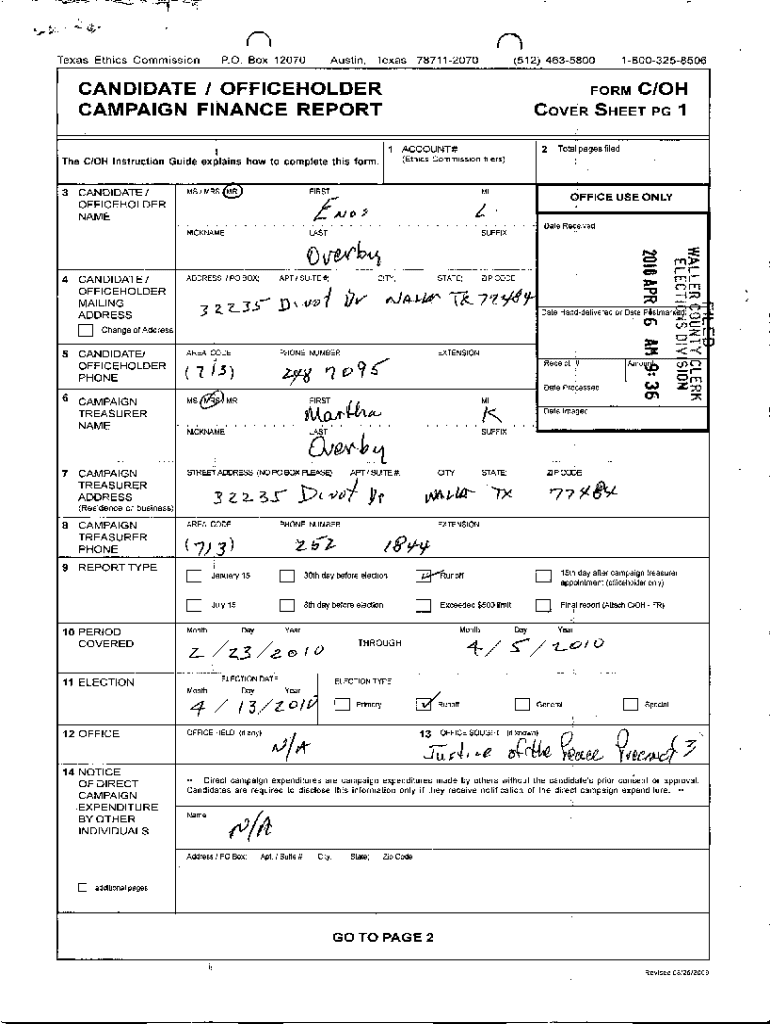 Texas Ethics Commission P.O. Box 12070 Austin, Texas 78711-2070 (512) 463-5800 1-800-325-8506
CANDIDATE / OFFICEHOLDER
CAMPAIGN FINANCE REPORT
FORM C/OH
COVER SHEET PG 1
The C/OH Instruction Guide explains how to complete this form.
1 ACCOUNT #
(Ethics Commission filers)
2 Total pages filed
3 CANDIDATE /
OFFICEHOLDER
NAME
MS / MRS / MR FIRST MI
Enos L.
NICKNAME LAST SUFFIX
Overby
OFFICE USE ONLY
Date Received
WALLER COUNTY CLERK
ELECTIONS DIVISION
FILED
2010 APR 6 AM 9:36
Date Hand-delivered or Date Postmarked
Receipt # Amount
Date Processed
Date Imaged
4 CANDIDATE /
OFFICEHOLDER
MAILING
ADDRESS
Change of Address
ADDRESS / PO BOX; APT / SUITE #; CITY; STATE; ZIP CODE
32235 Divot Dr Waller TX 77484
5 CANDIDATE/
OFFICEHOLDER
PHONE
AREA CODE PHONE NUMBER EXTENSION
(713) 248 7095
6 CAMPAIGN
TREASURER
NAME
MS / MRS / MR FIRST MI
Martha K
NICKNAME LAST SUFFIX
Overby
7 CAMPAIGN
TREASURER
ADDRESS
(Residence or business)
STREET ADDRESS (NO PO BOX PLEASE); APT / SUITE #; CITY STATE; ZIP CODE
32235 Divot Dr Waller TX 77484
8 CAMPAIGN
TREASURER
PHONE
AREA CODE PHONE NUMBER EXTENSION
(713) 252 1844
9 REPORT TYPE
January 15 30th day before election Runoff 15th day after campaign treasurer
appointment (officeholder only)
July 15 8th day before election Exceeded $500 limit Final report (Attach C/OH - FR)
10 PERIOD
COVERED
Month Day Year THROUGH Month Day Year
2 / 23 / 2010 4 / 5 / 2010
11 ELECTION
ELECTION DATE
Month Day Year
4 / 13 / 2010
ELECTION TYPE
Primary Runoff General Special
12 OFFICE
OFFICE HELD (if any)
N/A
13 OFFICE SOUGHT (if known)
Justice of the Peace Precinct 3
14 NOTICE
OF DIRECT
CAMPAIGN
EXPENDITURE
BY OTHER
INDIVIDUALS
additional pages
** Direct campaign expenditures are campaign expenditures made by others without the candidate's prior consent or approval.
Candidates are required to disclose this information only if they receive notification of the direct campaign expenditure. **
Name
N/A
Address / PO Box; Apt. / Suite # City; State; Zip Code
GO TO PAGE 2
Revised 08/26/2009